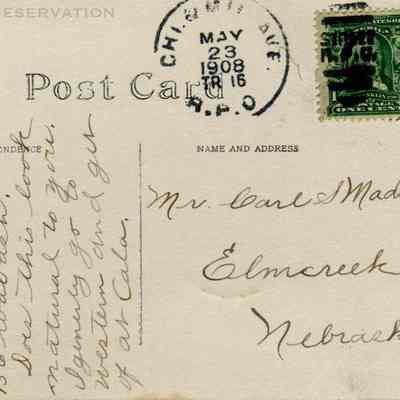 ESERVATION
CHI. & MIL. AVE.
MAY
23
1908
TR 16
R.P.O
Post Card
ONE CENT
NDENCE
NAME AND ADDRESS
Mr. Carl S Mad
Elmcreek
Nebrask
Wabash.
Does this look
natural to you.
I generly go to
western and get
of at Cala.